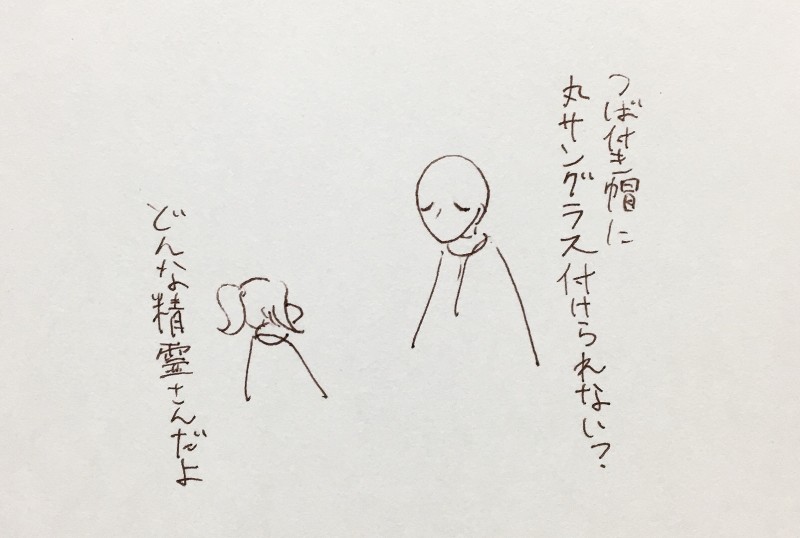 つば付き帽に
丸サングラス付けられない?
どんな精霊さんだよ